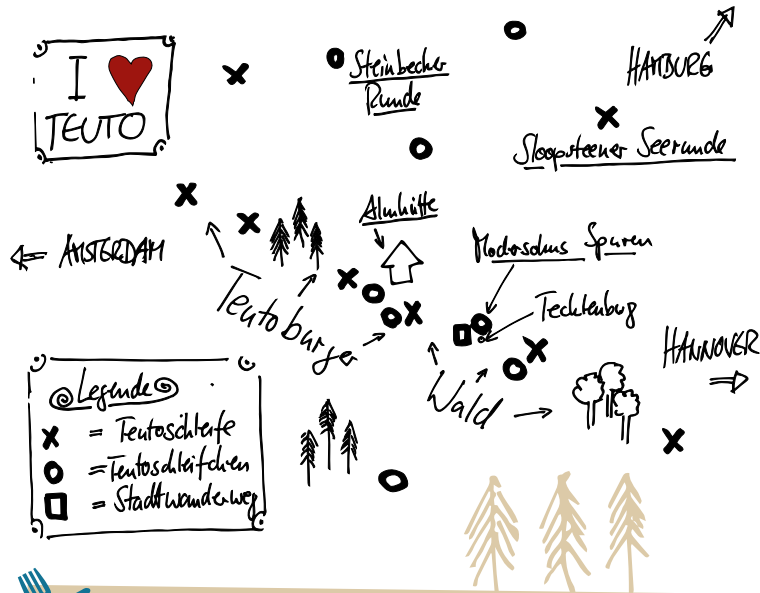 I ♥
TEUTO
Steinbecher
Runde
HAMBURG
Sloopsteener Seerunde
Almhütte
AMSTERDAM
Modersohns Spuren
Tecklenburg
Teutoburger
Wald
HANNOVER
Legende
X = Teutoschleife
O = Teutoschleifchen
□ = Stadtwanderweg